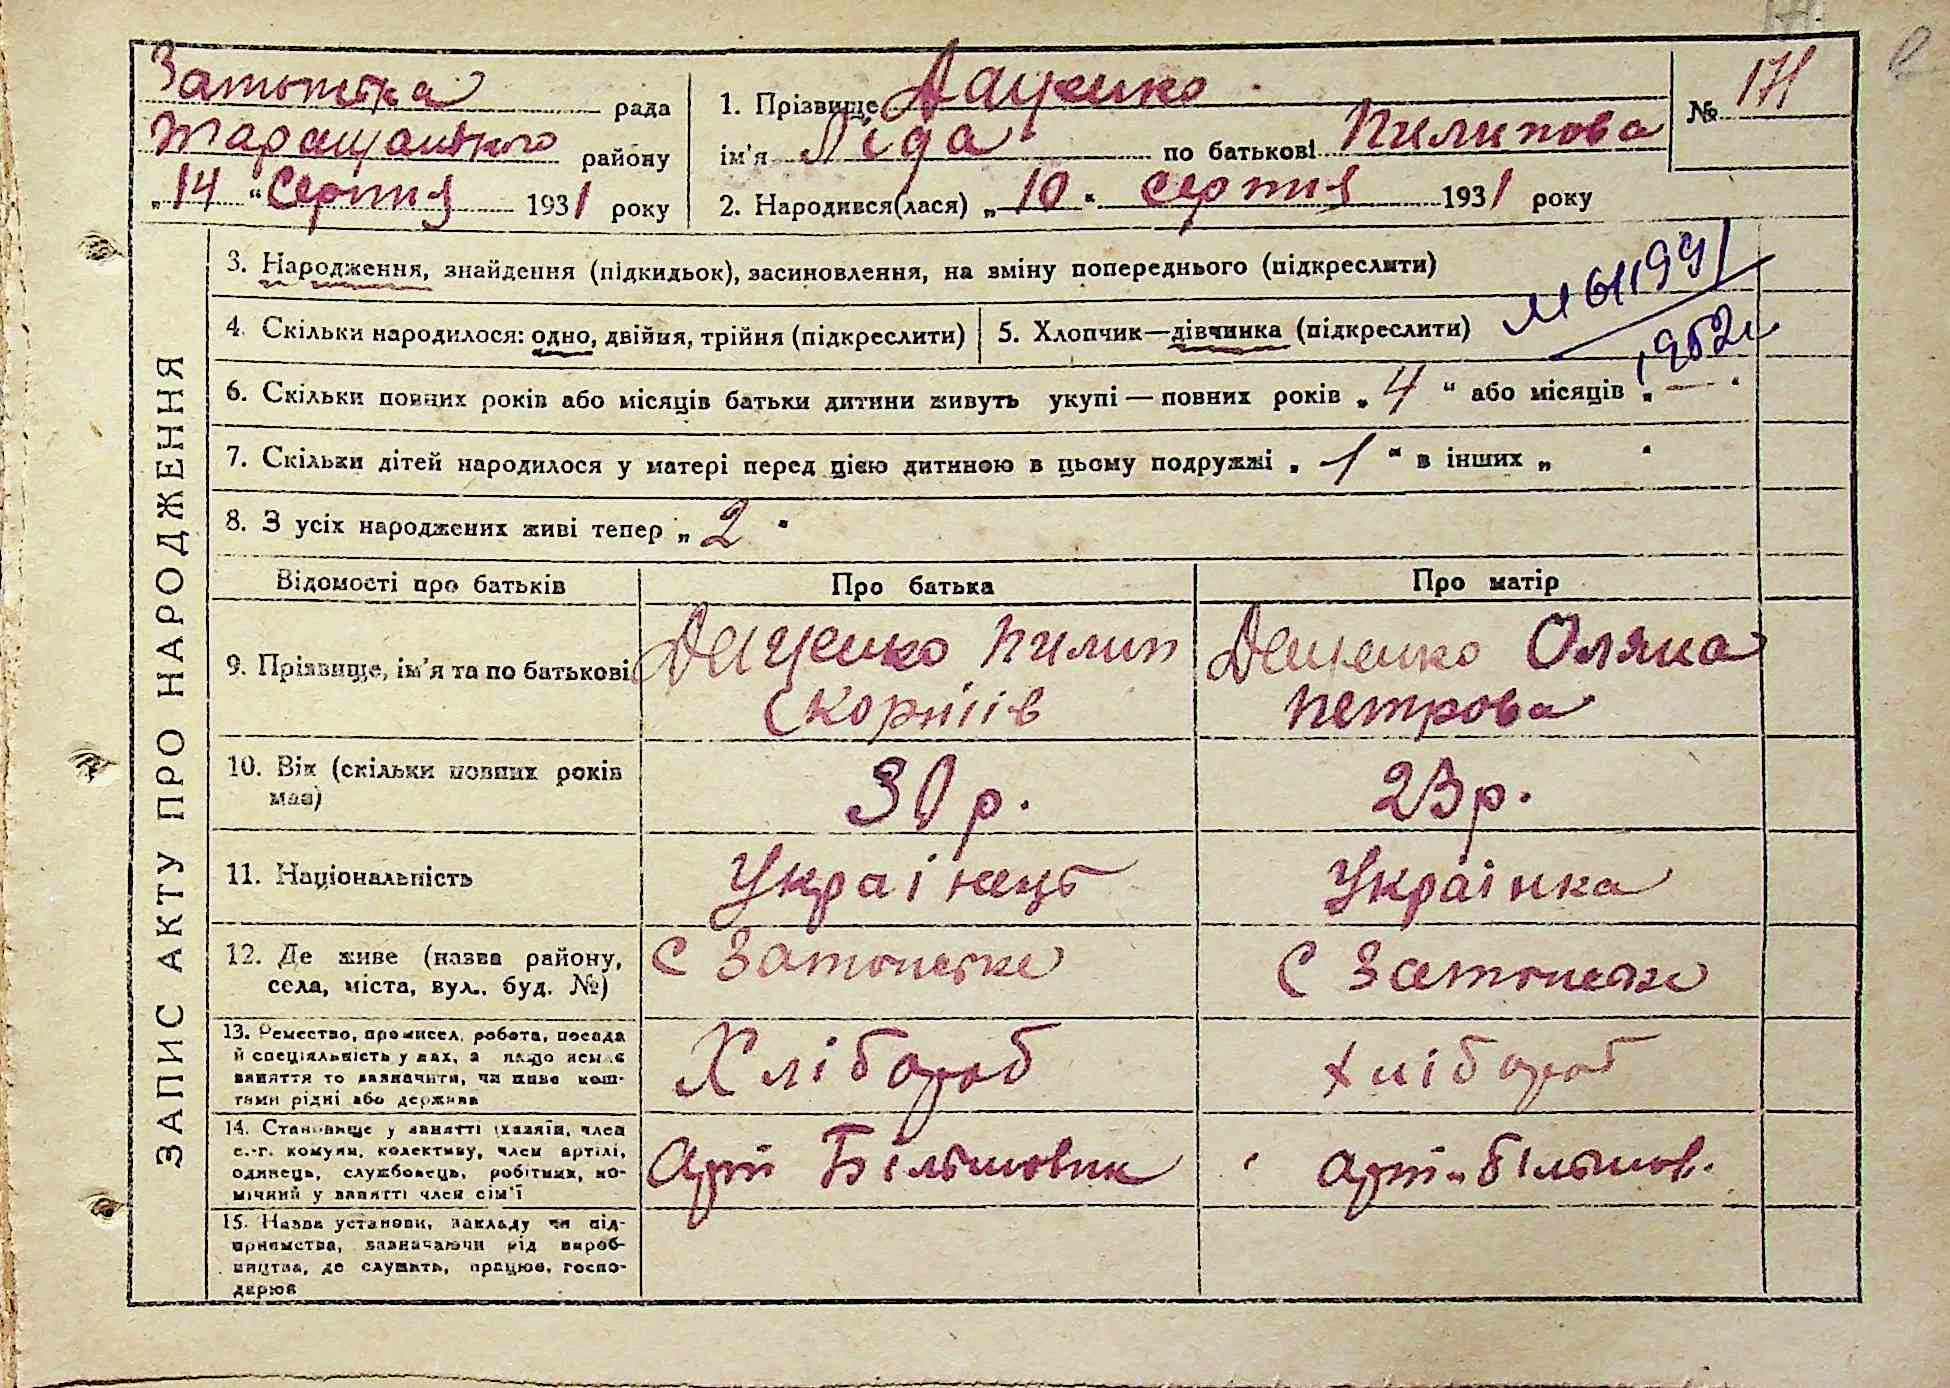 ЗАПИС АКТУ ПРО НАРОДЖЕННЯ
рада
Таращанського району
„14“ Серпня 1931 року
1. Прізвище Даценко
ім’я Ліда по батькові Пилипова
2. Народився(лася) „10“ серпня 1931 року
№ 171
3. Народження, знайдення (підкидьок), засиновлення, на зміну попереднього (підкреслити)
4. Скільки народилося: одно, двійня, трійня (підкреслити)
5. Хлопчик—дівчинка (підкреслити)
1952
6. Скільки повних років або місяців батьки дитини живуть укупі — повних років „4“ або місяців „—“
7. Скільки дітей народилося у матері перед цією дитиною в цьому подружжі „1“ в інших „ “
8. З усіх народжених живі тепер „2“
Відомості про батьків
Про батька
Про матір
9. Прізвище, ім’я та по батькові
Даценко Пилип
Даценко Оляна
Петрова
10. Вік (скільки повних років
має)
30 р.
23 р.
11. Національність
Українець
Українка
12. Де живе (назва району,
села, міста, вул., буд. №)
с
с
13. Ремество, промисел, робота, посада
й спеціяльність у них, а якщо немає
заняття то зазначити, чи живе кош-
тами рідні або держави
Хлібороб
Хлібороб
14. Становище у занятті (хазяїн, член
с.-г. комуни, колективу, член артілі,
одинець, службовець, робітник, по-
мічний у занятті член сім’ї
Арт Більшовик
арт. Більшов.
15. Назва установи, закладу чи під-
приємства, зазначаючи рід вироб-
ництва, де служить, працює, госпо-
дарює